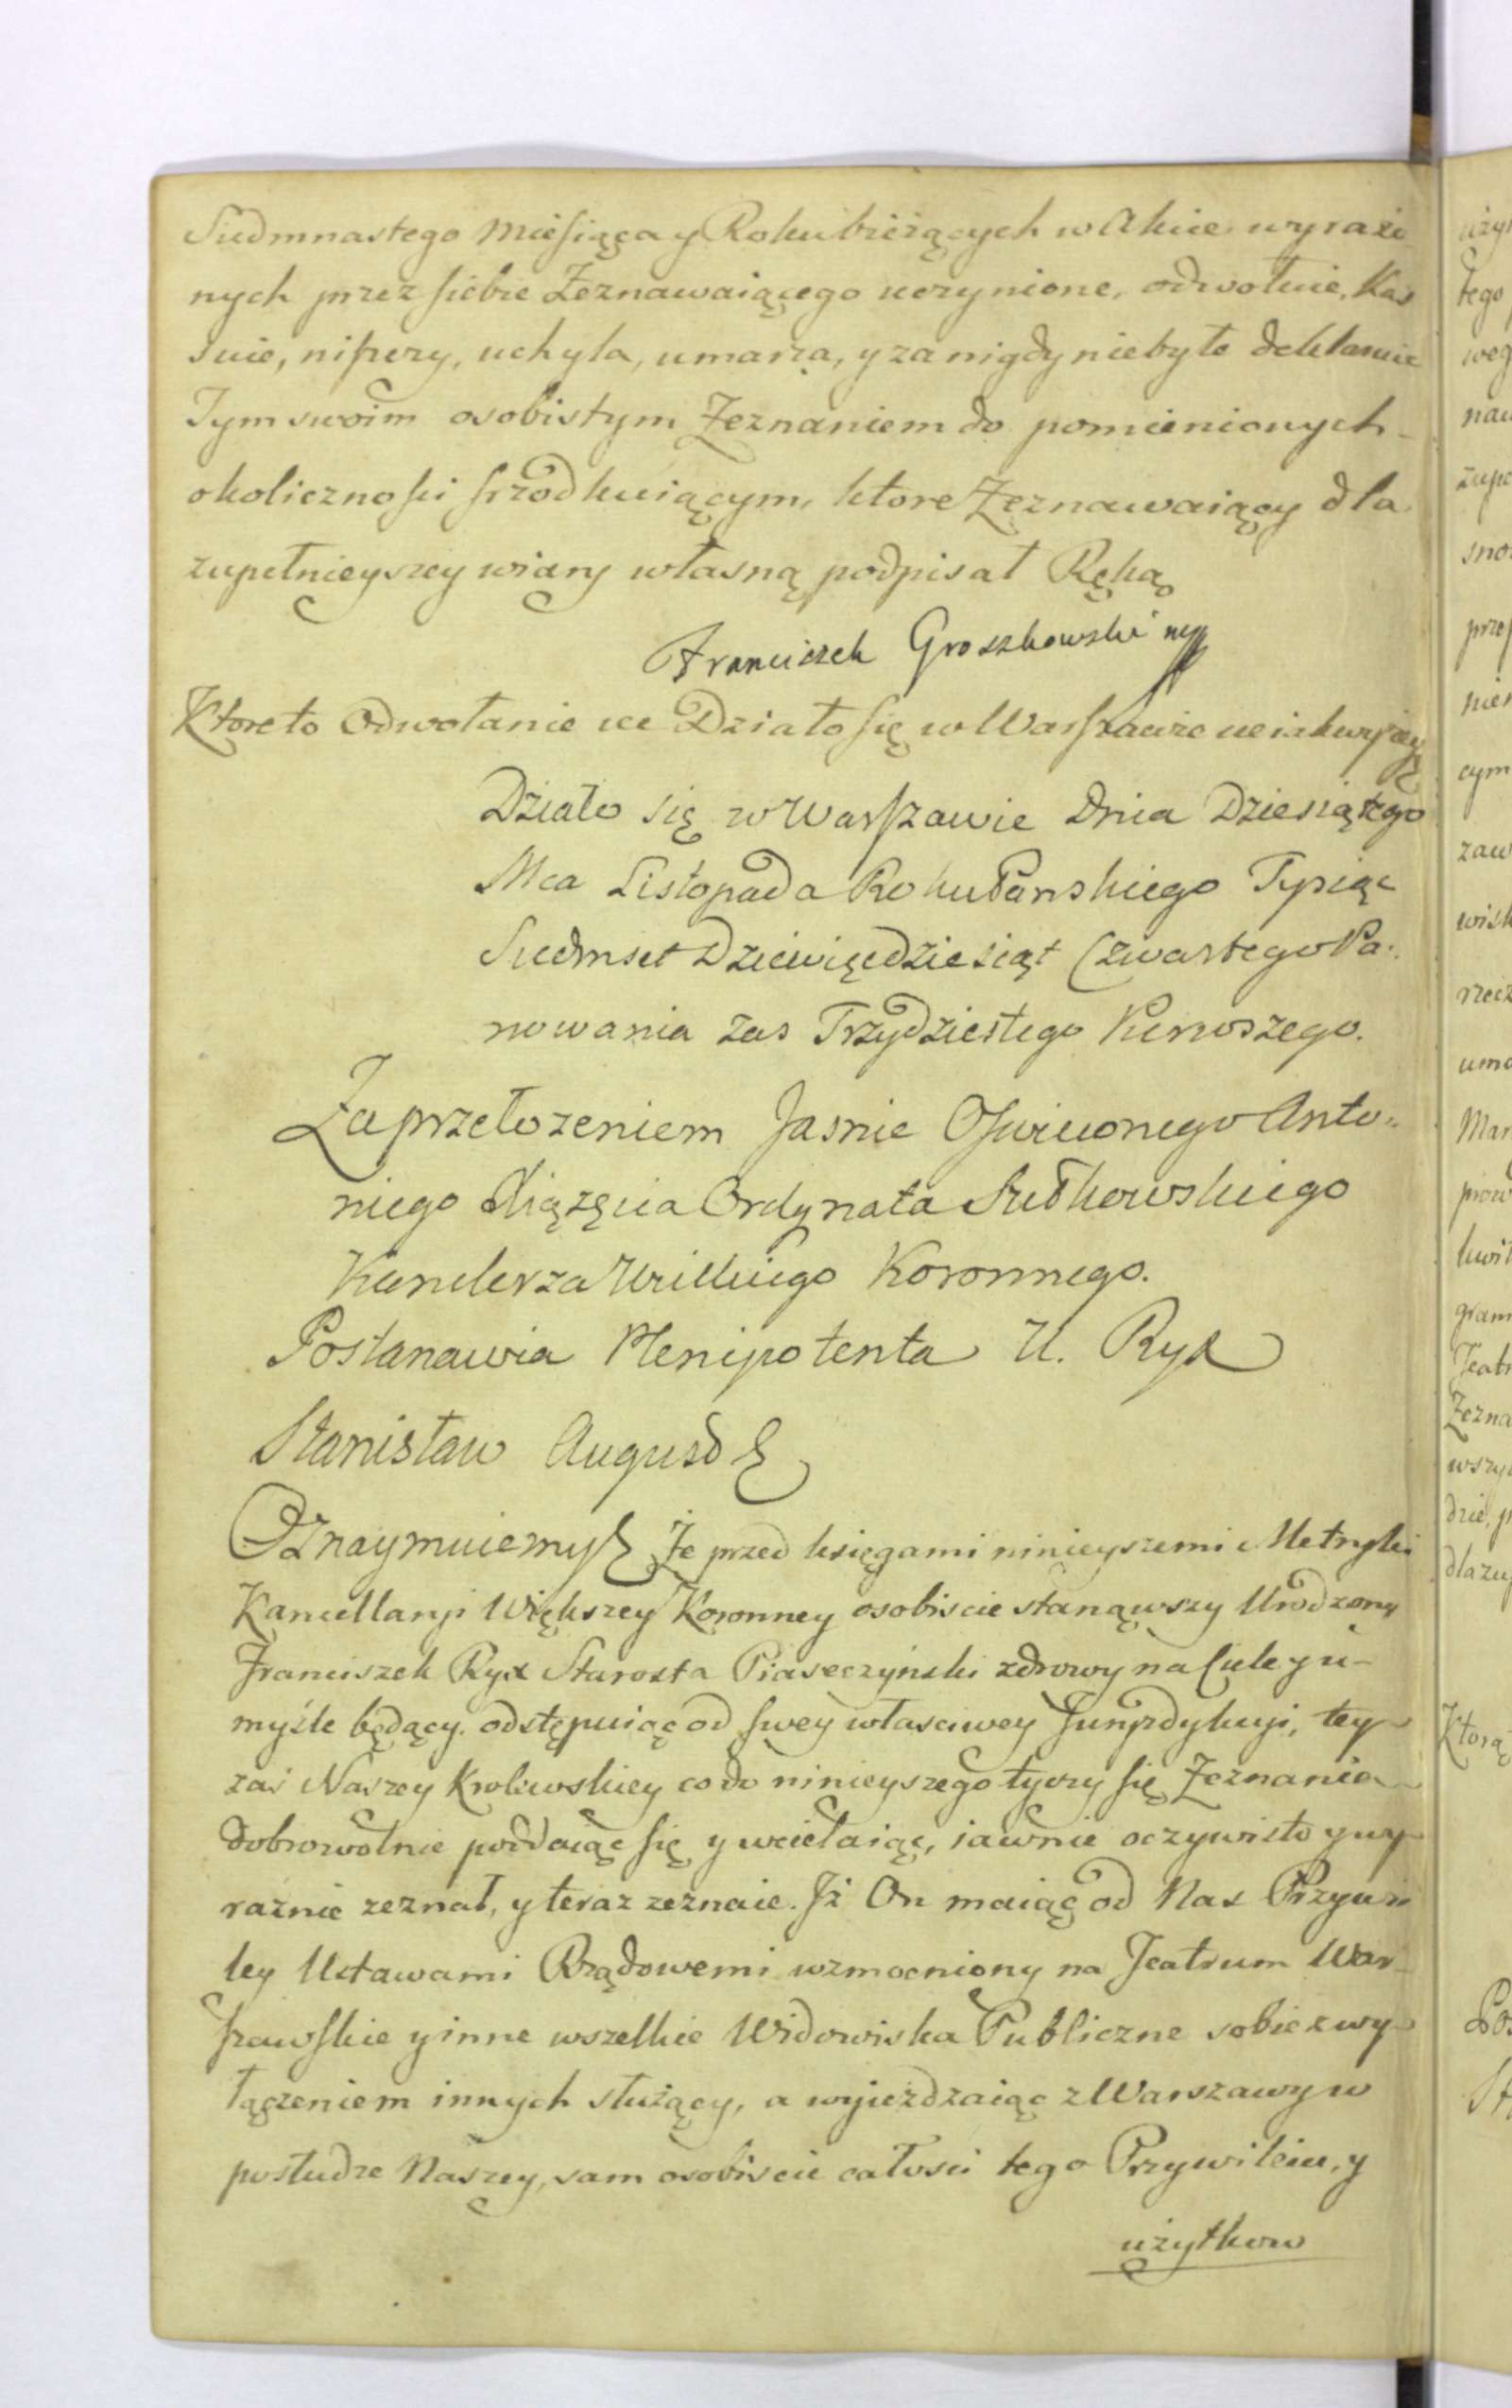 Siedmnastego Miesiąca y Roku bieżących w Akcie wyrażo
nych przez siebie Zeznawaiącego uczynione, odwołuie, Kas
suie, niszczy, uchyla, umarza, y za nigdy niebyłe deklaruie
Tym swoim osobistym Zeznaniem do pomienionych
okoliczności srzodkuiącym, ktore Zeznawaiący dla
zupełnieyszey wiary własną podpisał Ręką
Franciszek Groszkowski mp
Ktoreto Odwołanie etc Działo się w Warszawie etc iak wyżey
Działo się w Warszawie Dnia Dziesiątego
Mca Listopada Roku Pańskiego Tysiąc
Siedmset Dziewięcdziesiąt Czwartego Pa:
nowania zas Trzydziestego Pierwszego.
Za przełozeniem Jasnie Oswieconego Anto:
niego Xiązęcia Ordynata Sułkowskiego
Kanclerza Wielkiego Koronnego.
Postanawia Plenipotenta U. Ryx
Stanisław August &
Oznaymuiemy & Że przed księgami ninieyszemi Metryki
Kancellaryi Większey Koronney osobiscie stanąwszy Urodzony
Franciszek Ryx Starosta Piaseczyński zdrowy na Ciele y u-
myśle będący. odstępuiąc od swey własciwey Jurysdykcyi, tey
zaś Naszey Krolewskiey co do ninieyszego tyczy się Zeznania
dobrowolnie poddaiąc się y wcielaiąc, iawnie oczywisto y wy-
raźnie zeznał, y teraz zeznaie. Jż On maiąc od Nas Przywi
ley Ustawami Rządowemi wzmocniony na Teatrum War-
szawskie y inne wszelkie Widowiska Publiczne sobie z wy-
łączeniem innych służący, a wyieżdzaiąc z Warszawy w
posłudze Naszey, sam osobiscie całości tego Przywileiu, y
użytkow